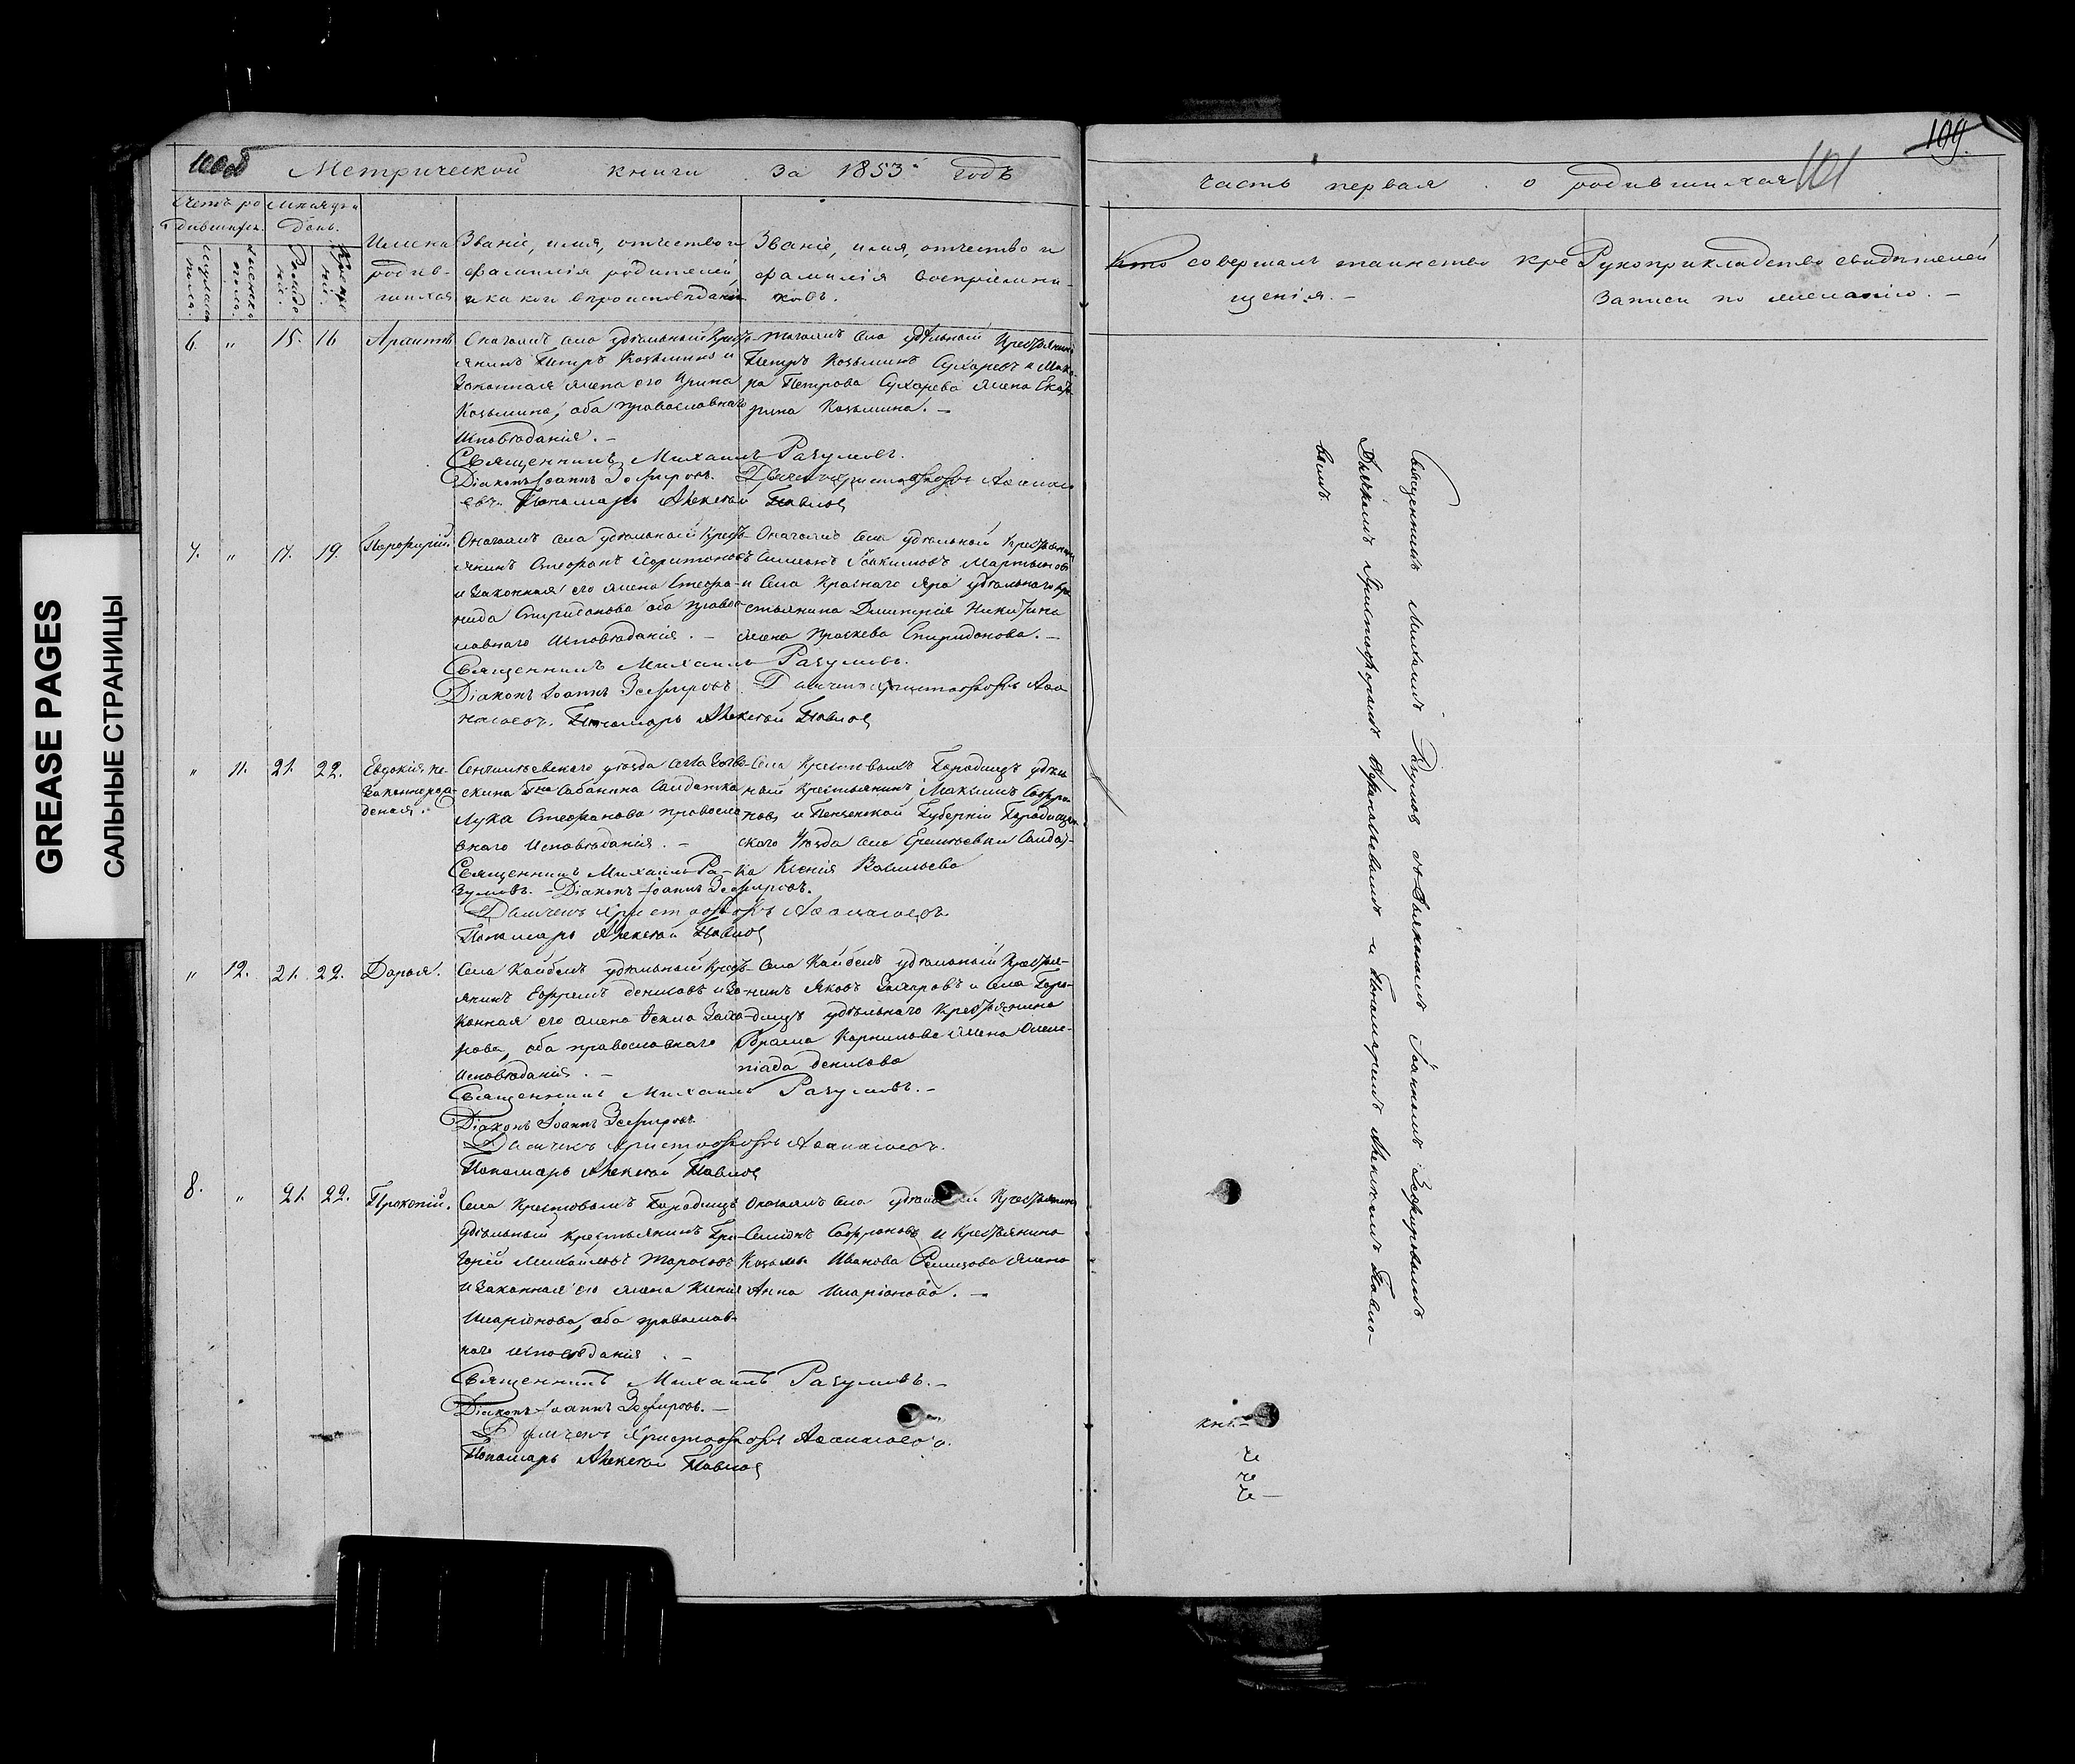 GREASE PAGES
САЛЬНЫЕ СТРАНИЦЫ
100об Метрической книги за 1853 годъ
Счетъ родившихся.
Мужеска пола.
Женска пола.
Мѣсяцъ и день.
Рожденій.
Крещеній.
Имена родившихся
Званіе, имя, отчество и
фамилія родителей,
и какого вѣроисповѣданія
Званіе, имя, отчество и
фамилія воспріемниковъ.
6. " 15. 16
село удѣльный Крестьянинъ Петръ Козьминъ и
законная жена его Ирина
Козьмина, оба православнаго
исповѣданія. –
села удѣльный Крестьянинъ
Петръ Козьминъ Сухаревъ и
Петрова Сухарева жена Екатерина Козьмина. –
Священникъ Михаилъ Разумовъ.
Діаконъ Іоаннъ Зефировъ. Дьячекъ Христофоръ Аѳанасьевъ. Пономарь Алексѣй Павлов
7. " 17. 19. Порфирій.
села удѣльный Крестьянинъ Стефанъ Харитоновъ
и законная его жена Стефанида Спиридонова оба православнаго исповѣданія. –
села удѣльный Крестьянинъ
Симеонъ Іоакимовъ Мартыновъ
и села Краснаго Яра удѣльнаго крестьянина Димитрія Никитина
жена Праскева Спиридонова. –
Священникъ Михаилъ Разумовъ.
Діаконъ Іоаннъ Зефировъ. Дьячекъ Христофоръ Аѳанасьевъ. Пономарь Алексѣй Павлов
" 11. 21. 22. Евдокія незаконнорожденная.
Сенгилеевскаго уѣзда села
Сабанина Солдатка
Стефанова православнаго исповѣданія. –
Села Крестовыхъ Городищъ удѣльный крестьянинъ Максимъ Софроновъ и Пензенской Губерніи Городищенскаго Уѣзда села Солдатка Ксенія Васильева
Священникъ Михаилъ Разумовъ. – Діаконъ Іоаннъ Зефировъ.
Дьячекъ Христофоръ Аѳанасьевъ.
Пономарь Алексѣй Павлов
" 12. 21. 22. Дарья.
Села Кайбелъ удѣльный Крестьянинъ Ефремъ Денисовъ и законная его жена Ѳекла Захарова, оба православнаго
исповѣданія. –
Села Кайбелъ удѣльный Крестьянинъ Яковъ Захаровъ и села Городищъ удѣльнаго Крестьянина
Корнилова жена Олимпіада Денисова
Священникъ Михаилъ Разумовъ. –
Діаконъ Іоаннъ Зефировъ.
Дьячекъ Христофоръ Аѳанасьевъ.
Пономарь Алексѣй Павлов
8. " 21. 22. Прокопій.
Села Крестовыхъ Городищъ
удѣльный крестьянинъ Григорій Михайловъ Тарасовъ
и законная его жена Ксенія
Иларіонова, оба православнаго исповѣданія. –
села удѣльный Крестьянинъ
Семіонъ Софроновъ и Крестьянина
Козьмы Иванова Ремизова жена
Анна Иларіонова. –
Священникъ Михаилъ Разумовъ. –
Діаконъ Іоаннъ Зефировъ. –
Дьячекъ Христофоръ Аѳанасьевъ.
Пономарь Алексѣй Павлов
часть первая о родившихся 101
109.
Кто совершалъ таинство крещенія. –
Рукоприкладство свидѣтелей
записи по желанію. –
Священникъ Михаилъ Разумовъ съ Діакономъ Іоанномъ Зефировымъ
Дьячкомъ Христофоромъ Аѳанасьевымъ и Пономаремъ Алексѣемъ Павловымъ.